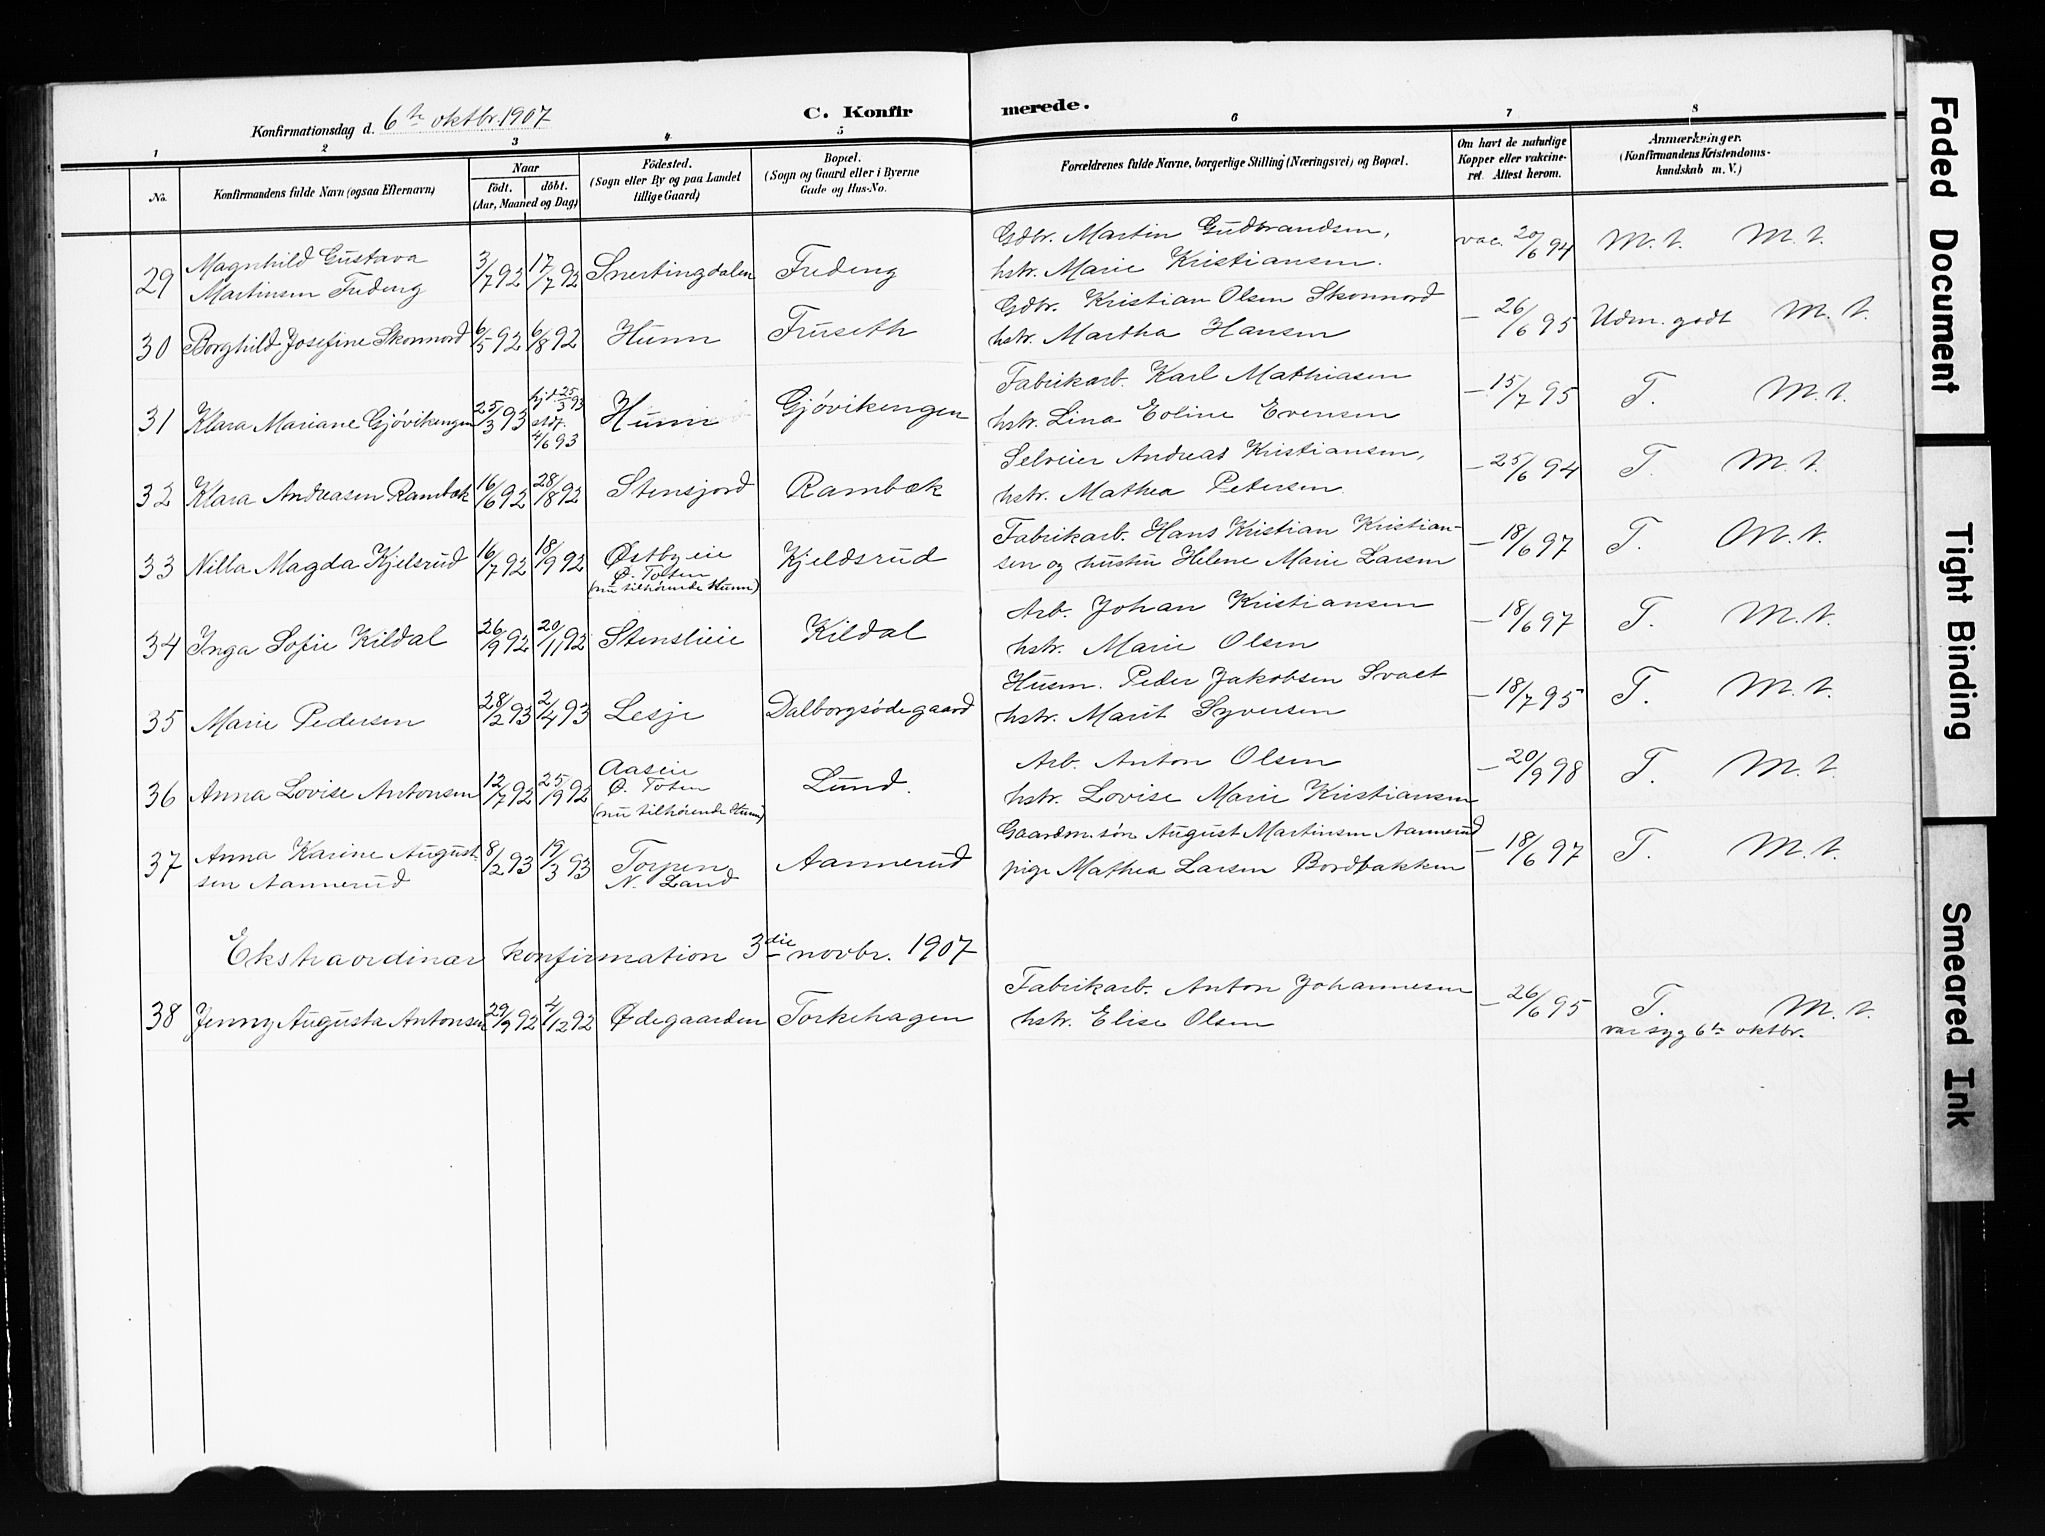 Konfirmationsdag d. 6te oktbr 1907
C. Konfirmerede.
1 2 3 4 5 6 7 8
No.
Konfirmandens fulde Navn (ogsaa Efternavn)
Naar
födt. döbt.
(Aar, Maaned og Dag)
Födested.
(Sogn eller By og paa Landet
tillige Gaard)
Bopæl.
(Sogn og Gaard eller i Byerne
Gade og Hus-No.
Forældrenes fulde Navne, borgerlige Stilling (Næringsvei) og Bopæl.
Om havt de naturlige
Kopper eller vakcine-
ret. Attest herom.
Anmærkninger.
(Konfirmandens Kristendoms-
kundskab m. V.)
29 Magnhild Gustava
Martinsen Fredeng
3/7 92 17/7 92 Snertingdalen Fredeng
Gdbr. Martin Gudbrandsen,
hstr. Marie Kristiansen.
vac. 20/6 94 M. t. M. t.
30 Borghild Josefine Skonnord 6/5 92 6/8 92 Hunn Fuseth
Gdbr. Kristian Olsen Skonnord
hstr. Martha Hansen
— 26/6 95 Udm. godt M. t.
31 Klara Mariane Gjøvikengen 25/3 93 hjd 25/3 93
stdf.
4/6 93
Hunn Gjøvikengen
Fabrikarb. Karl Mathiasen
hstr. Lina Eoline Evensen
— 15/7 95 T. M. t.
32 Klara Andreasen Rambæk 16/6 92 28/8 92 Stensjord Rambæk
Selveier Andreas Kristiansen,
hstr. Mathea Petersen
— 25/6 94 T. M. t.
33 Nilla Magda Kjelsrud 16/7 92 18/9 92 Østbyeie
Ø. Toten
(nu tilhørende Hunn)
Kjeldsrud
Fabrikarb. Hans Kristian Kristian-
sen og hustru Helene Marie Larsen
— 18/6 97 T. M. t.
34 Inga Sofie Kildal 26/9 92 20/11 92 Stenslieie Kildal
Arb. Johan Kristiansen
hstr. Marie Olsen
— 18/6 97 T. M. t.
35 Marie Pedersen 28/2 93 2/4 93 Lesje Dalborgsødegaard
Husm. Peder Jakobsen Svaet
hstr. Marit Syversen
— 18/7 95 T. M. t.
36 Anna Lovise Antonsen 12/7 92 25/9 92 Aaseie
Ø. Toten
(nu tilhørende Hunn)
Lund.
Arb. Anton Olsen
hstr. Lovise Marie Kristiansen
— 20/9 98 T. M. t.
37 Anna Karine August-
sen Aannerud
8/2 93 19/3 93 Torpen
N. Land
Aannerud
Gaardm. søn August Martinsen Aannerud
pige Mathea Larsen Bordbakken
— 18/6 97 T. M. t.
Ekstraordinær konfirmation 3die novbr. 1907
38 Jenny Augusta Antonsen 29/9 92 4/12 92 Ødegaarden Torkehagen
Fabrikarb. Anton Johannesen
hstr. Elise Olsen
— 26/6 95 T. M. t.
var syg 6te oktbr.
Faded Document
Tight Binding
Smeared Ink